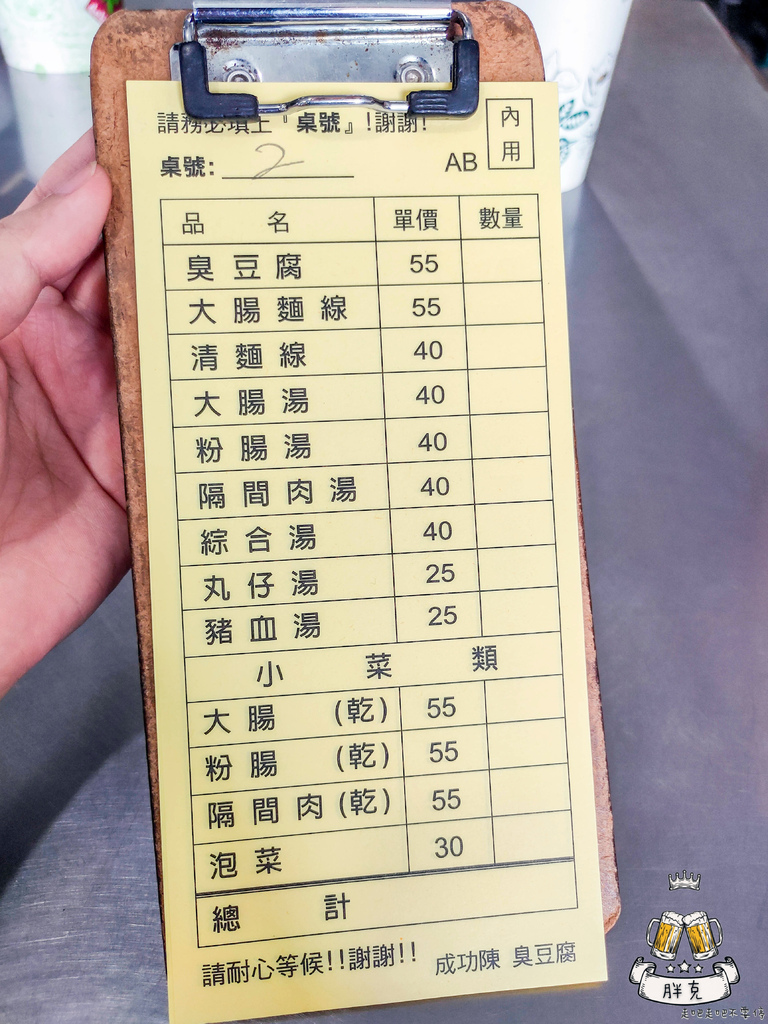 請務必填上『桌號』!謝謝!
內用
桌號: 2
AB
品名 單價 數量
臭豆腐 55
大腸麵線 55
清麵線 40
大腸湯 40
粉腸湯 40
隔間肉湯 40
綜合湯 40
丸仔湯 25
豬血湯 25
小菜類
大腸(乾) 55
粉腸(乾) 55
隔間肉(乾) 55
泡菜 30
總計
請耐心等候!!謝謝!! 成功陳 臭豆腐
胖克
走吧走吧不要停